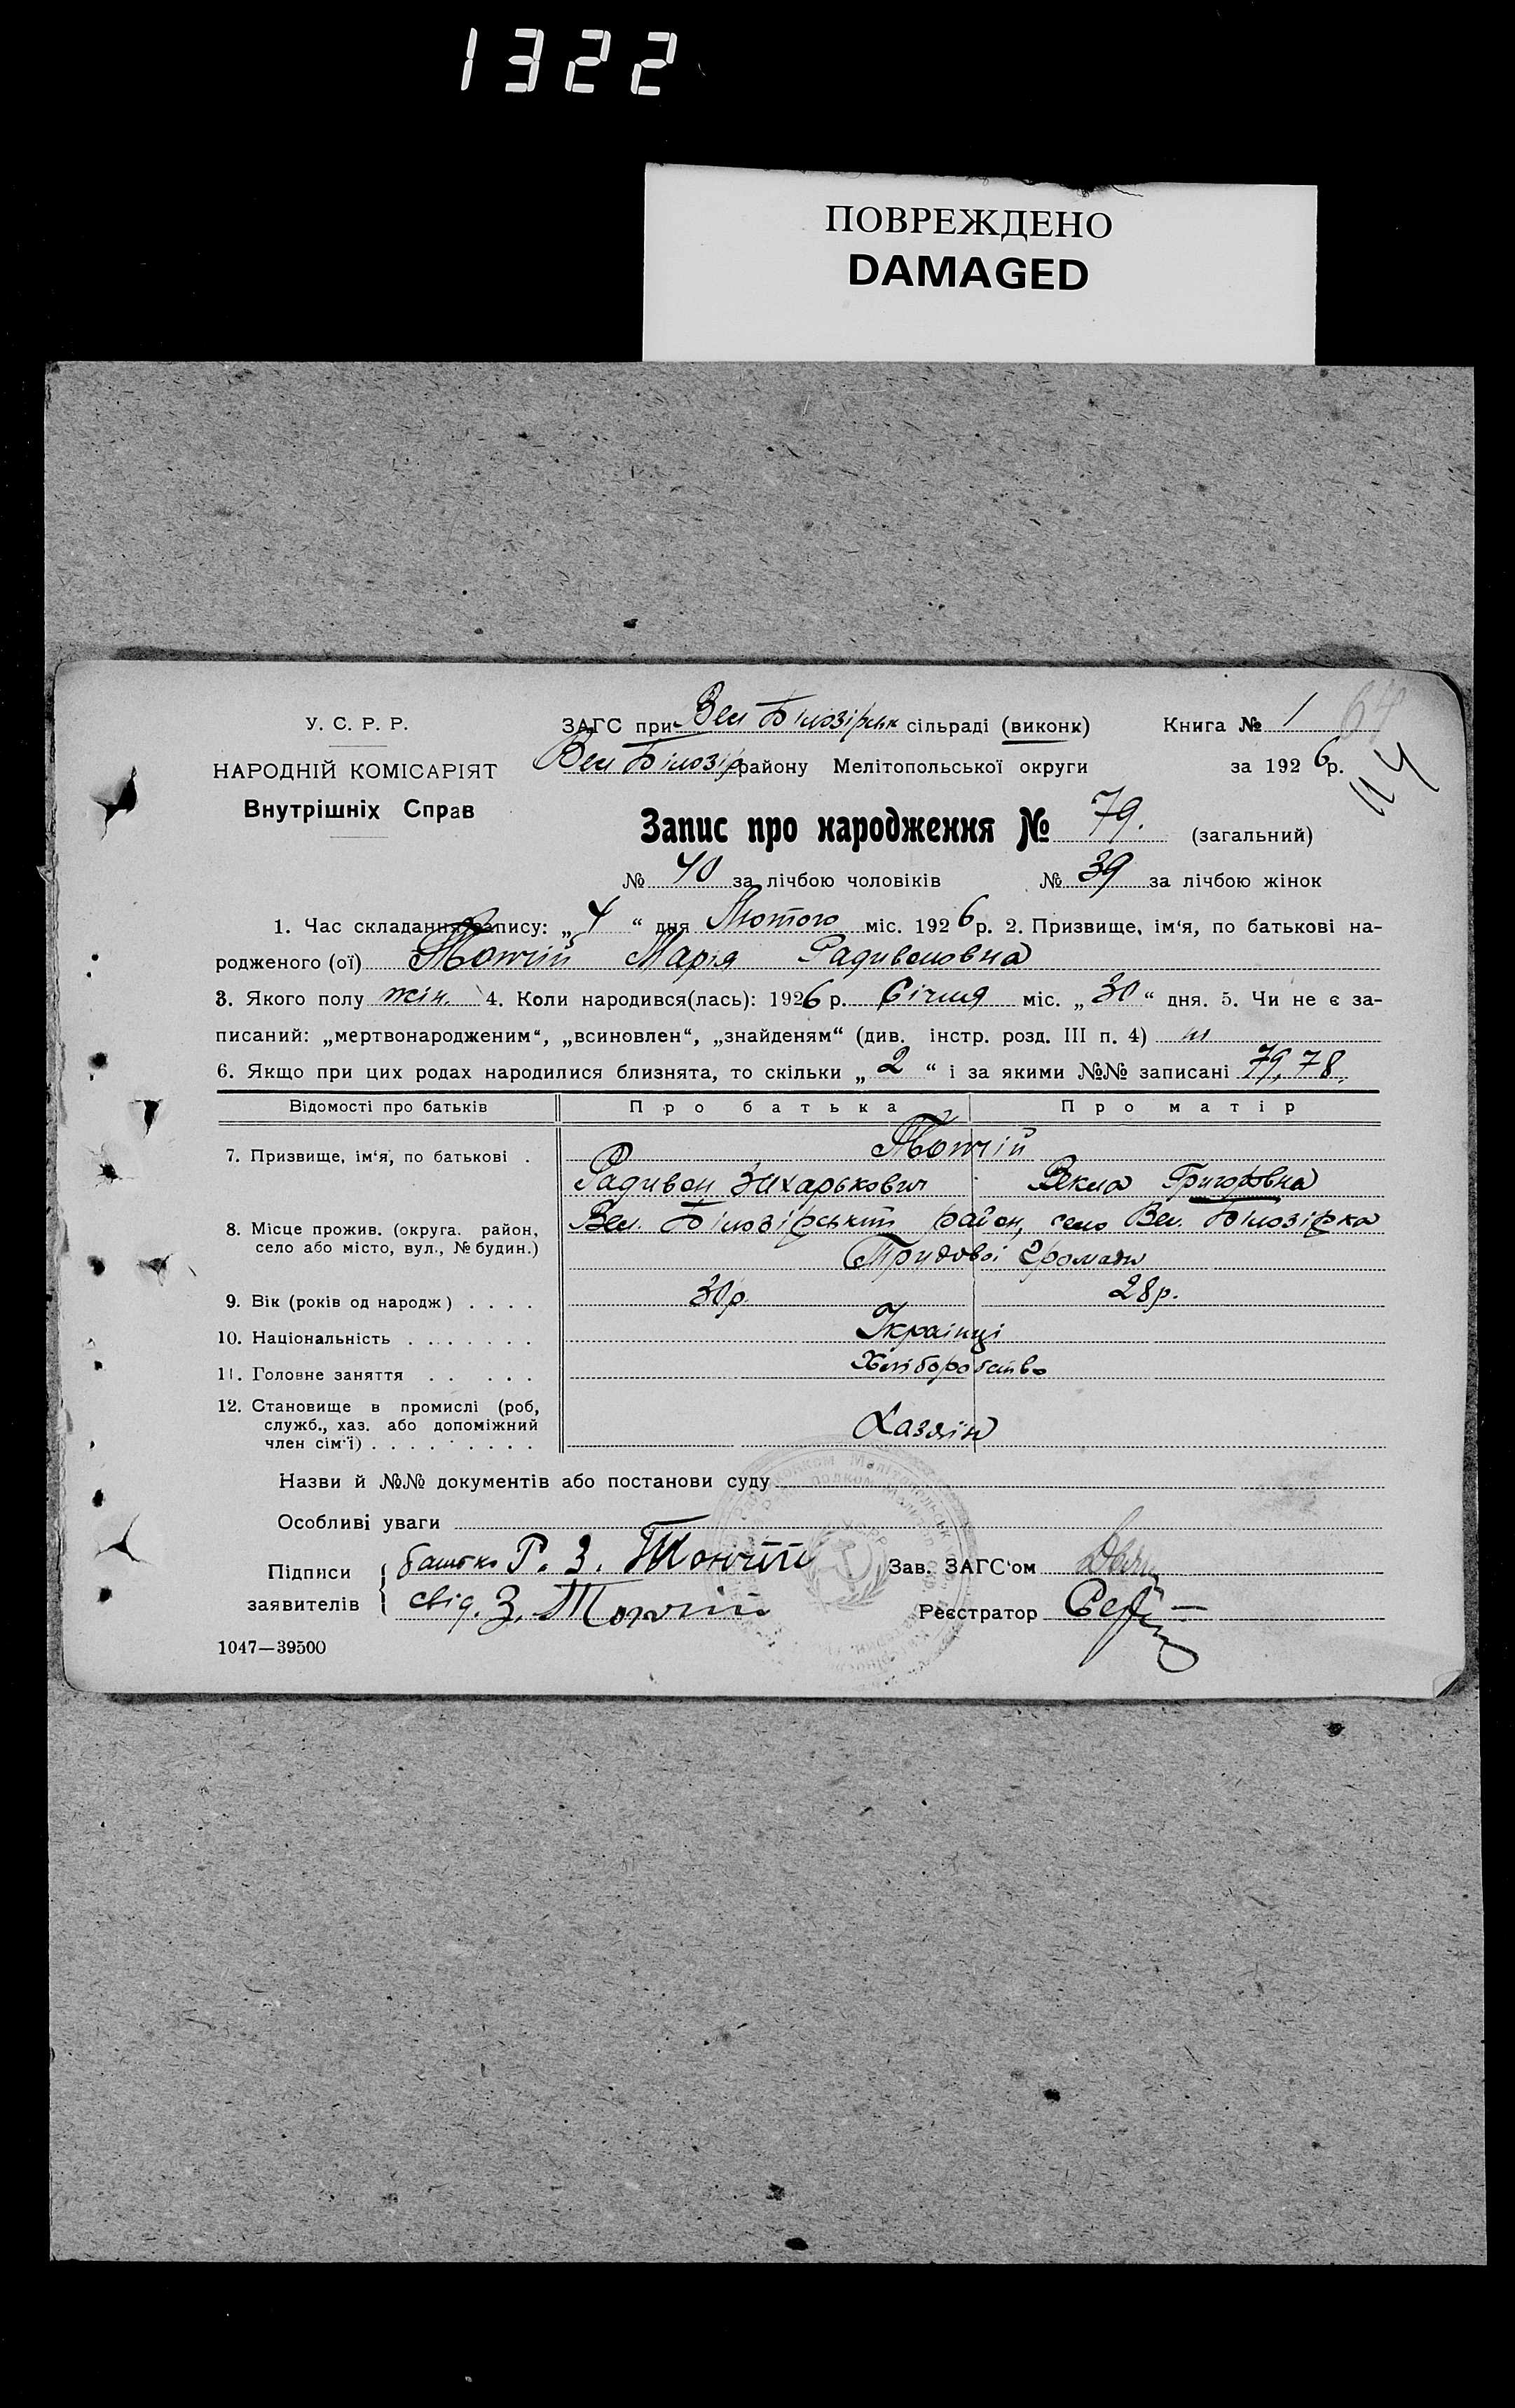 1322
ПОВРЕЖДЕНО
DAMAGED
У. С. Р. Р.
НАРОДНІЙ КОМІСАРІЯТ
Внутрішніх Справ
ЗАГС при Вел Білозірськ сільраді (виконк)
Вел Білозір району Мелітопольської округи
Книга № 1
64
за 1926 р.
Запис про народження № 79. (загальний)
№ 40 за лічбою чоловіків № 39 за лічбою жінок
1. Час складання запису: „4“ дня Лютого міс. 1926 р. 2. Призвище, ім‘я, по батькові на-
родженого (ої) Тончій Марія Радивоновна
3. Якого полу жін. 4. Коли народився(лась): 1926 р. Січня міс. „30“ дня. 5. Чи не є за-
писаний: „мертвонародженим“, „всиновлен“, „знайденям“ (див. інстр. розд. III п. 4) ні
6. Якщо при цих родах народилися близнята, то скільки „2“ і за якими №№ записані 79, 78.
Відомості про батьків Про батька Про матір
7. Призвище, ім‘я, по батькові . Тончій
Радивон Захарькович Векла Григоровна
8. Місце прожив. (округа. район, село або місто, вул., № будин.) Вел. Білозірський район, село Вел. Білозірка
Трудової Громади
9. Вік (років од народж) . . . . 30 р. 28 р.
10. Національність . . . . . . . Українці
11. Головне заняття . . . . . Хліборобство
12. Становище в промислі (роб, служб., хаз. або допоміжний член сім‘ї) . . . . . . . . . Хазяїн
Назви й №№ документів або постанови суду
Особливі уваги
Підписи заявителів { батько Р. З. Тончій
свід. З. Тончій
Зав. ЗАГС‘ом
Реєстратор
1047—39500